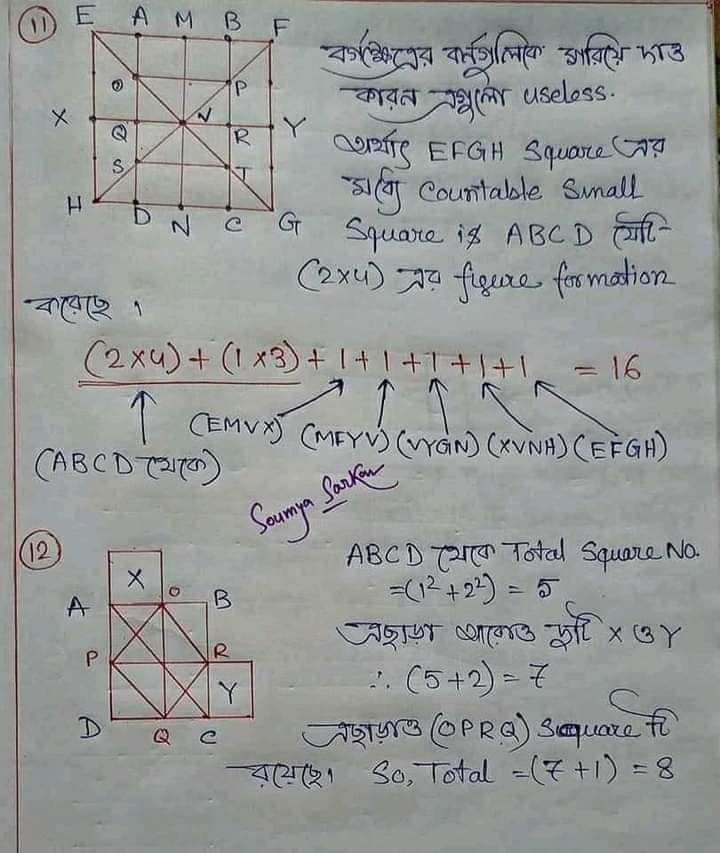 11
E A M B F
O P
X Q V R Y
S T
H D N C G
বর্গক্ষেত্রের কর্নগুলিকে সরিয়ে দাও
কারন এগুলো useless.
অর্থাৎ EFGH Square এর
মধ্যে Countable Small
Square is ABCD যেটি
(2x4) এর figure formation
করেছে।
(2x4) + (1x3) + 1 + 1 + 1 + 1 + 1 = 16
(EMVX) (MFYV) (VYGN) (XVNH) (EFGH)
(ABCD থেকে)
Soumya Sarkar
12
X
A O B
P R
Y
D Q C
ABCD থেকে Total Square No.
=(1²+2²) = 5
এছাড়া আরোও দুটি X ও Y
∴ (5+2) = 7
এছাড়াও (OPRQ) Square টি
রয়েছে। So, Total =(7+1) = 8